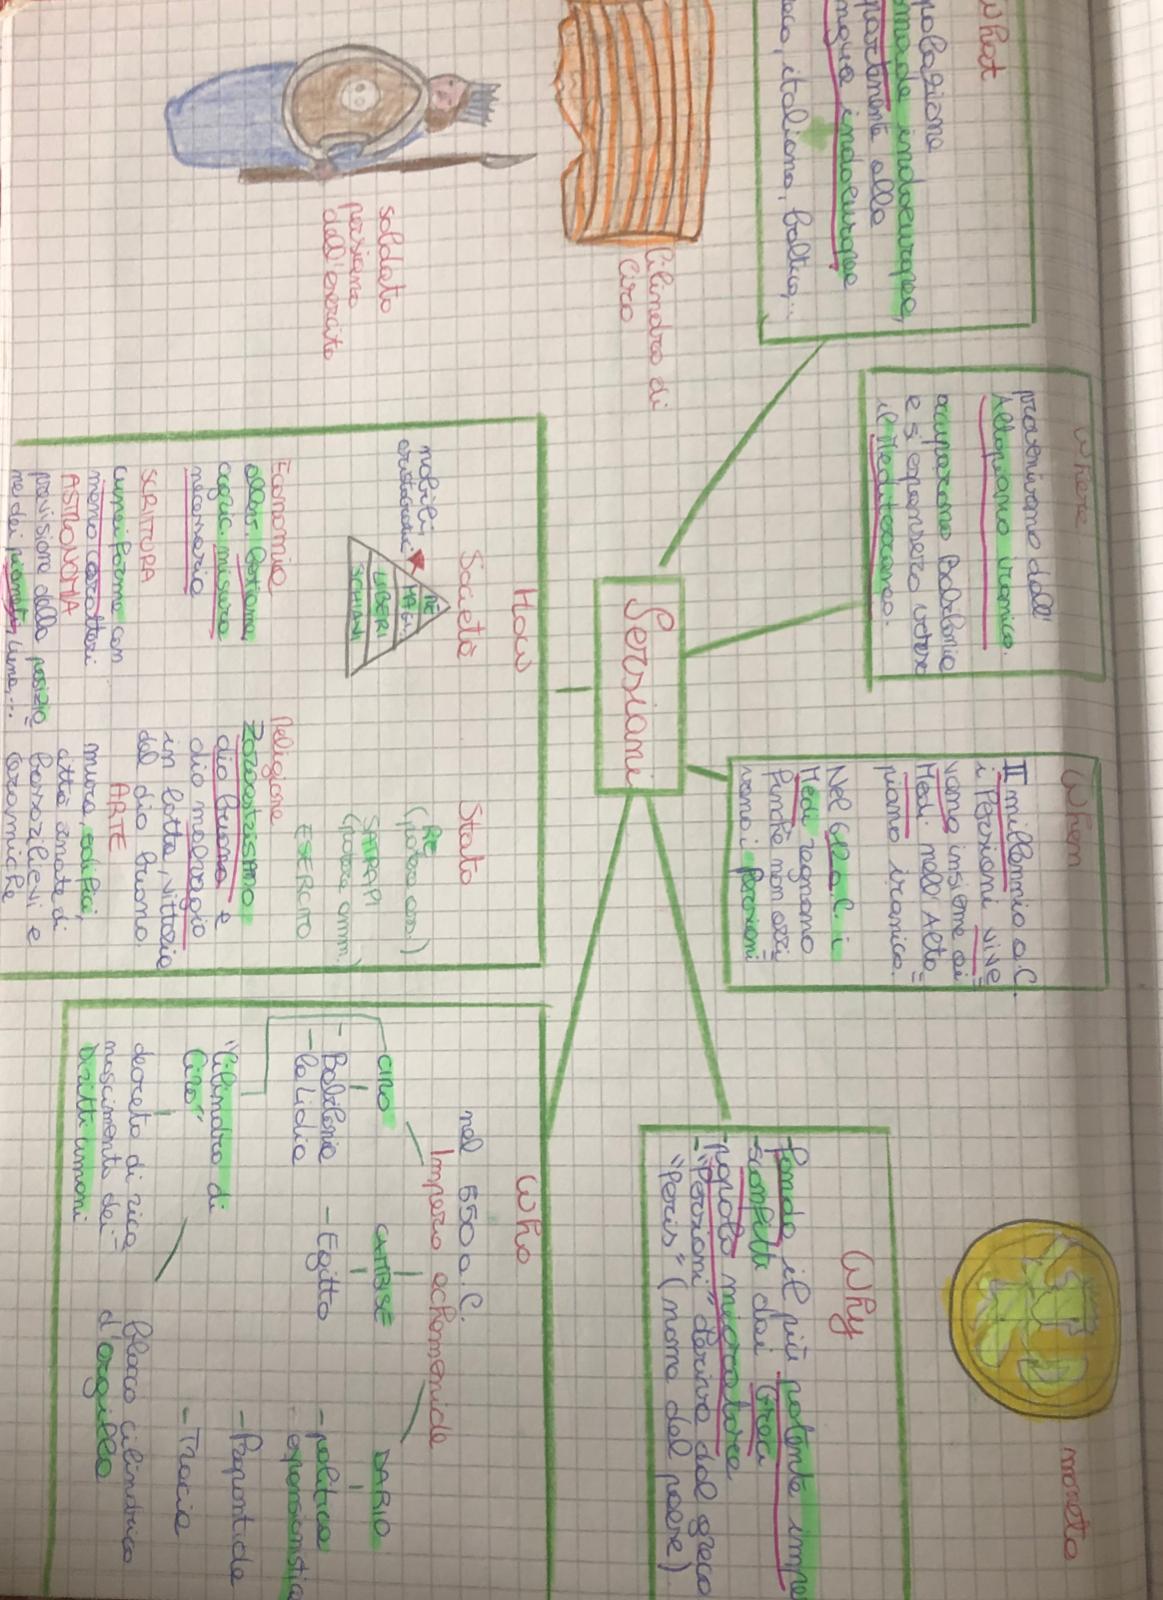 What
polazione
nomade indoeuropea,
appartenente alla
lingua indoeuropea
italiano, baltico,...
Where
provenivano dall'
Altopiano iranico.
occuparono Babilonia
e si espansero verso
il Mediterraneo.
When
II millennio a.C.
i Persiani vive=
vano insieme ai
Medi nell'Alto=
piano iranico.
Nel 612 a.C. i
Medi regnano
finché non arri=
vano i Persiani
moneta
Why
- fonda il più potente impe
- sconfitti dai Greci
- popolo mercatore
- "Persiani" deriva dal greco
"Persis" (nome del paese).
Persiani
Cilindro di
Ciro
soldato
persiano
dell'esercito
How
Società
nobili,
RE
MAGI.
LIBERI
SCHIAVI
Stato
RE
(potere ass.)
SATRAPI
(potere amm.)
ESERCITO
Economia
bestiame,
agric. misura
necessario
SCRITTURA
cuneiforme con
meno caratteri
ASTRONOMIA
previsione della posizio=
ne dei pianeti, luna,...
Religione
ZOROASTRISMO
dio buono e
dio malvagio
in lotta, vittoria
del dio buono.
ARTE
mura, edifici,
città ornate di
bassorilievi e
ceramiche
Who
nel 550 a.C.
Impero achemenide
CIRO
- Babilonia
- la Lidia
"Cilindro di
Ciro"
decreto di rico
noscimento dei
Diritti umani
blocco cilindrico
d'argilla
CAMBISE
- Egitto
DARIO
- politica
espansionistica
- Propontide
- Tracia